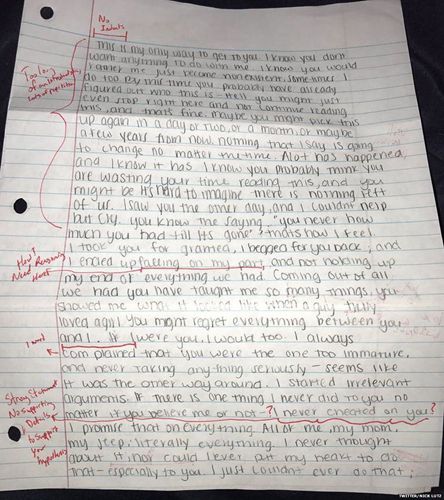 No
Indents
This is my only way to get to you. I know you don't
want anything to do with me. I know you would
rather me just become nonexistent. Sometimes I
do too. By this time you probably have already
figured out who this is - hell you might just
even stop right here and not continue reading
this, and that's fine. Maybe you might pick this
up again in a day or two, or a month, or maybe
a few years from now. Nothing that I say is going
to change no matter the time. Alot has happened
and I know it has. I know you probably think you
are wasting your time reading this, and you
might be. It's hard to imagine there is nothing left
of us. I saw you the other day, and I couldnt help
but cry. You know the saying, "you never how
much you had till its gone" thats how I feel.
I took you for granted, I begged for you back, and
I ended up falling on my part, and not holding up
my end of everything we had. Coming out of all
we had you have taught me so many things, you
showed me what it looked like when a guy fully
loved a girl. You might regret everything between you
and I. If I were you, I would too. I always
complained that you were the one too immature,
and never taking anything seriously - seems like
it was the other way around. I started irrelevant
arguments. If there is one thing I never did to you no
matter if you believe me or not-? I never cheated on you?
I promise that on everything. All of me, my mom,
my jeep: literally everything. I never thought
about it, nor could I ever put my heart to do
that - especially to you. I just couldnt ever do that;
Too long
of an
How?
Need
1 word
Strong Statement
No supporting
Details
to Support
your
hypothesis
TWITTER/NICK LUTZ